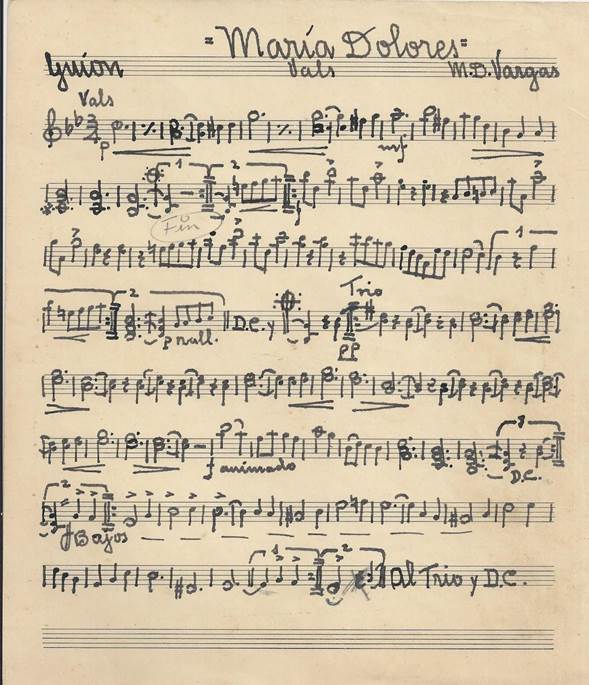 = María Dolores =
Guión Vals M.D. Vargas
Vals
3/4
p mf
1 2
Fin f
1
2 Trio
p rall. D.C. y
pp
3
f animado D.C.
2
f Bajos
1 2
Al Trio y D.C.